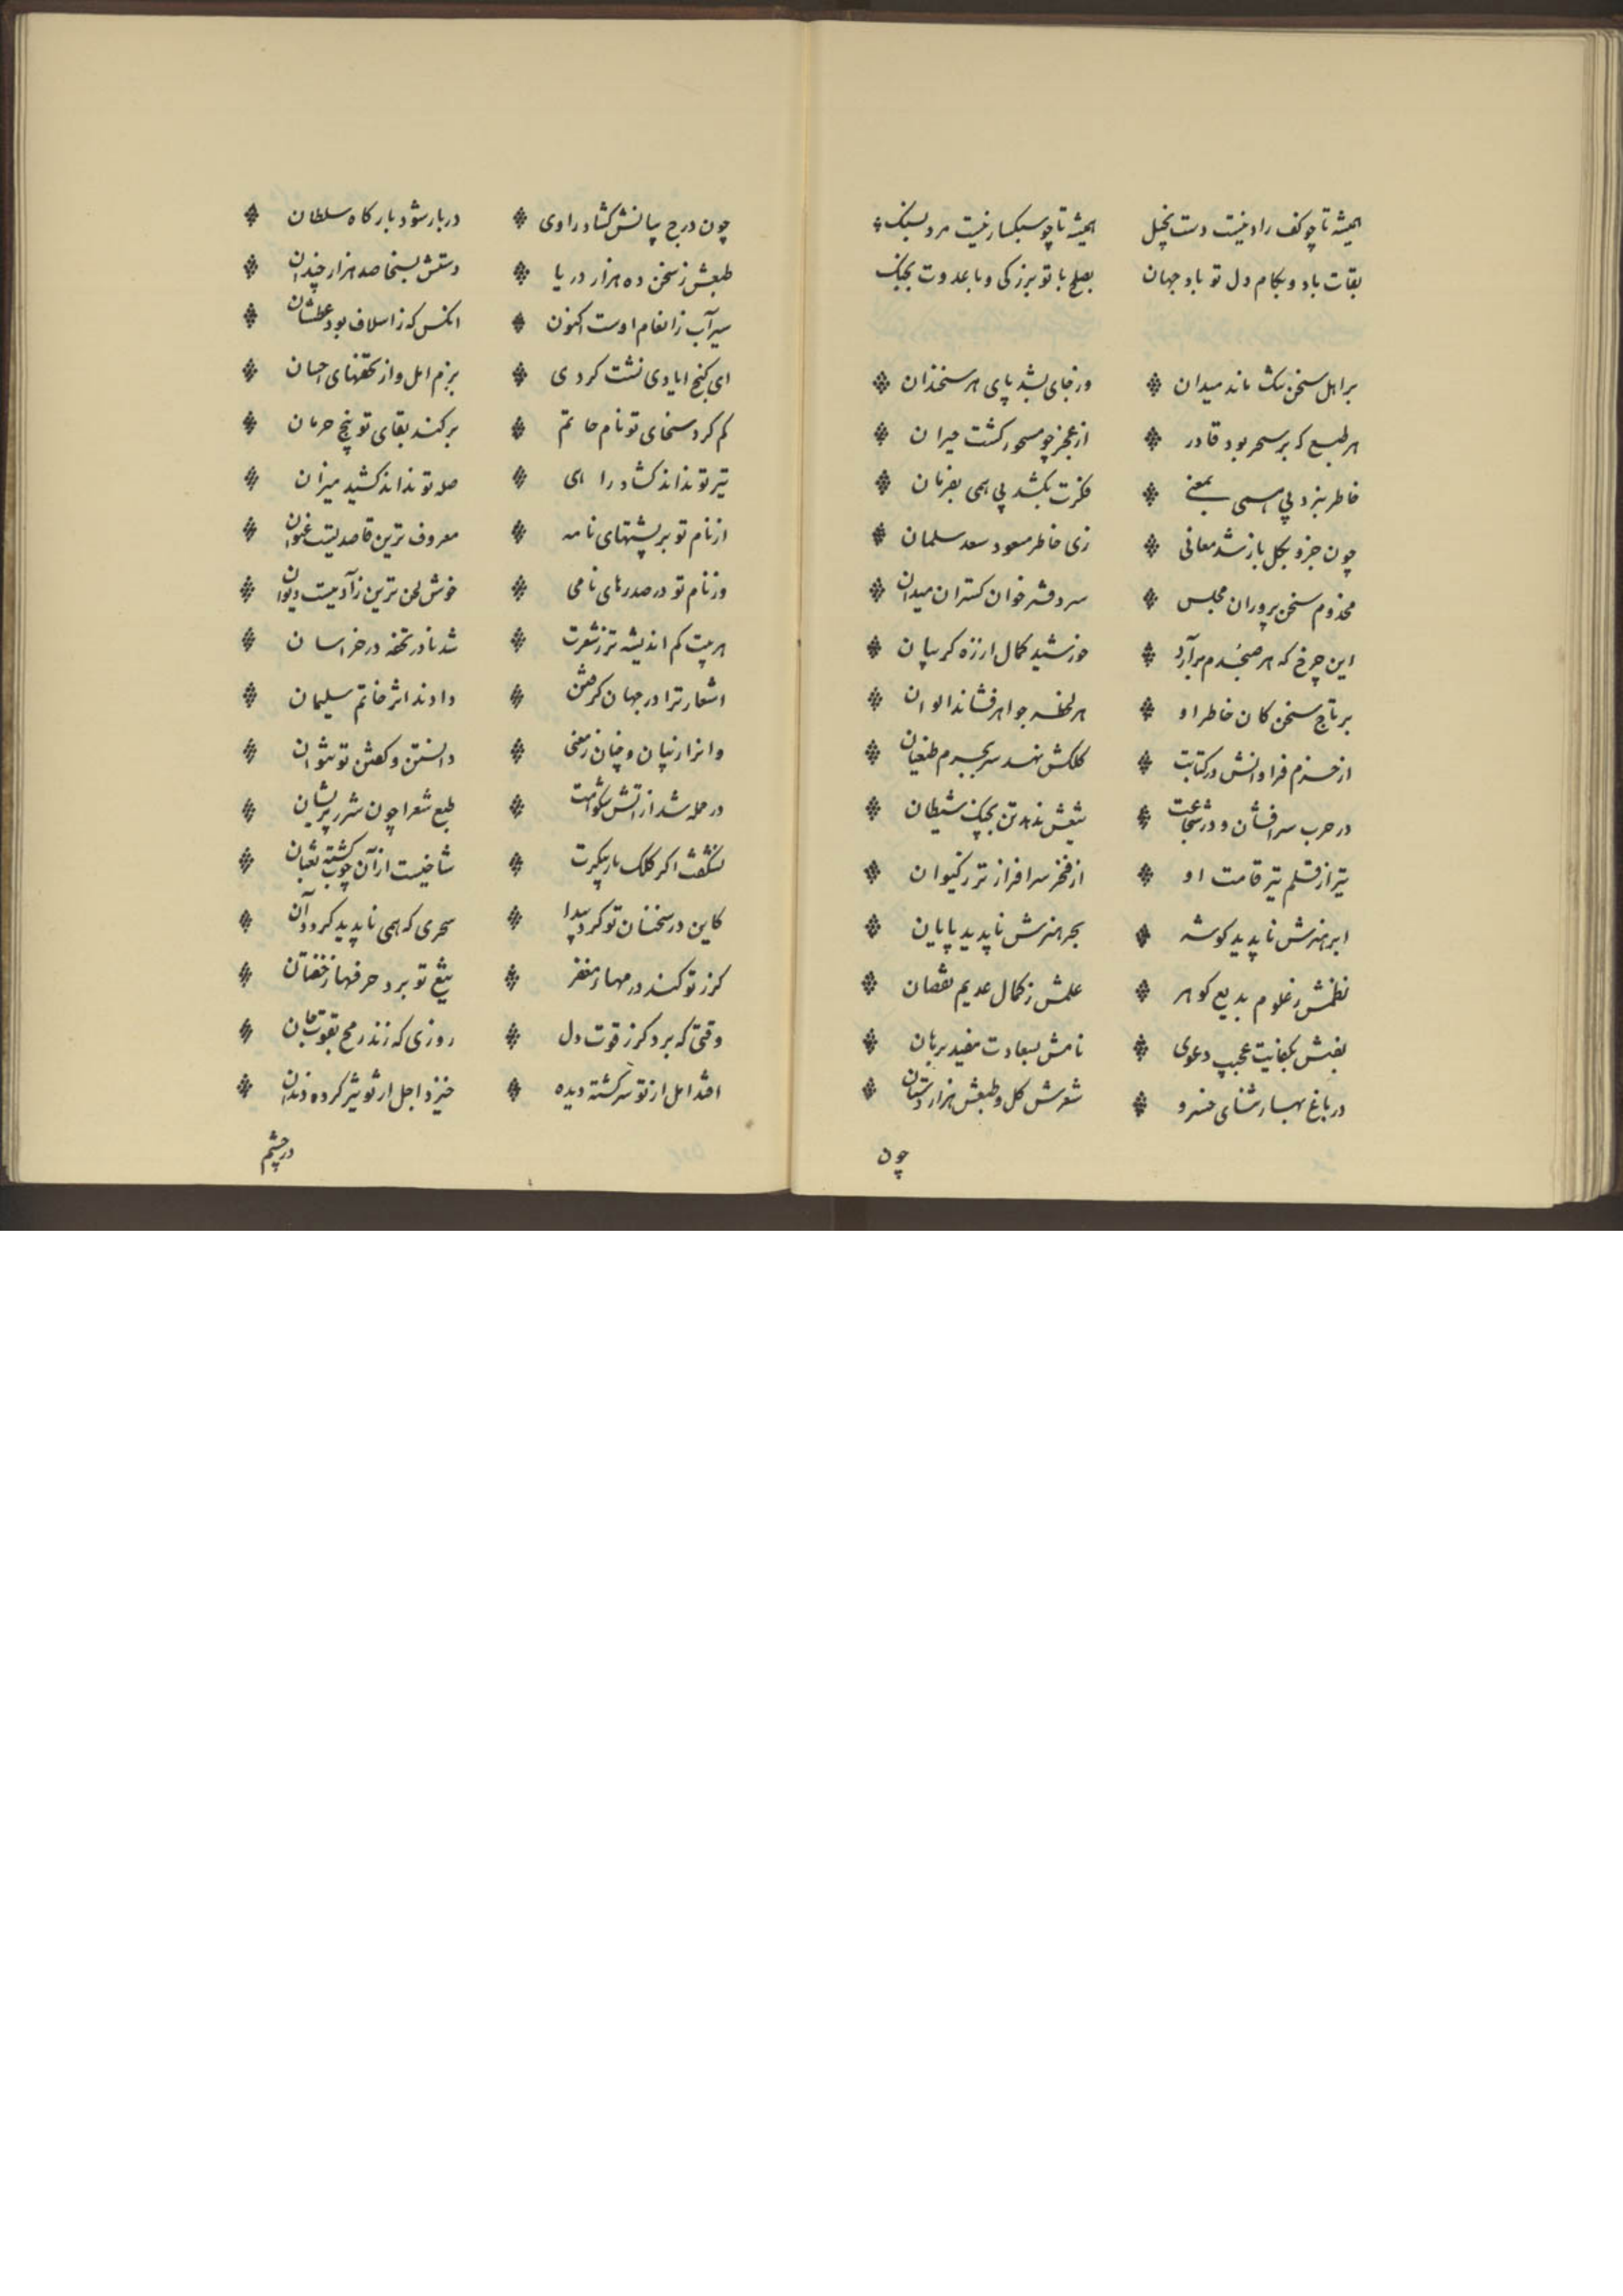 همیشه تا چو کف راد نیست دست بخیل همیشه تا چو سبکسار نیست مرد بسنک
بقات باد و بکام دل تو باد جهان بصلح با تو بزرکی و با عدوت بجنک
بر اهل سخن تنک ماند میدان وز جای بشد پای هر سخندان
هر طبع که بر سحر بود قادر از عجز چو مسحور کشت حیران
خاطر نبرد پی همی بمعنی فکرت نکشد پی همی بفرمان
چون جزو بکل باز شد معانی زی خاطر مسعود سعد سلمان
مخدوم سخن پروران مجلس سردفتر خوان کستران میدان
این چرخ که هر صبحدم برآرد خورشید کمال ار زه کریبان
بر تاج سخن کان خاطر او هر لحظه جواهر فشاند الوان
از حزم فراوانش در کتابت کلکش ننهد سر بجرم طغیان
در حرب سرافشان و در شجاعت تیغش ندهد تن بجنک شیطان
تیر از قلم تیر قامت او از فخر سرافرازتر ز کیوان
ابر هنرش ناپدید کوشه بحر هنرش ناپدید پایان
نظمش ز علوم بدیع کوهر علمش ز کمال عدیم نقصان
نفسش بکفایت عجیب دعوی نامش بسعادت مفید برهان
در باغ بهار ثنای خسرو شعرش کل و طبعش هزاردستان
چون
چون درج بیانش کشاد راوی دربار شود بارکاه سلطان
طبعش ز سخن ده هزار دریا دستش بسخا صد هزار چندان
سیرآب ز انعام اوست اکنون انکس که ز اسلاف بود عطشان
ای کنج ایادی نشت کردی بزم امل و از تحفهای احسان
کم کرد سخای تو نام حاتم برکند بقای تو بیخ حرمان
تیر تو نداند کشاد رای صله تو نداند کشید میزان
از نام تو بر پشتهای نامه معروف ترین قاصدیست عنوان
وز نام تو در صدرهای نامی خوش لحن ترین زآدمیست دیوان
هر بیت کم اندیشه تر ز شعرت شد نادر تحفه در خراسان
اشعار ترا در جهان کرفتن دادند اثر خاتم سلیمان
وانرا ز بیان و چنان ز معنی دانستن و کفتن تو نتوان
در حمله شد از آتش شکوهت طبع شعرا چون شرر پریشان
نشکفت اکر کلک مار پیکرت شاخیست از آن چوب کشته ثعبان
کاین در سخنان تو کرد پیدا سحری که همی ناپدید کرد آن
کرز تو کند درمها ز مغفر تیغ تو برد حرفها ز خفتان
وقتی که برد کرز قوت دل روزی که زند رمح بقوت جان
افتد امل از تو سرکشته دیده خیزد اجل از تو تیز کرده دندان
در چشم